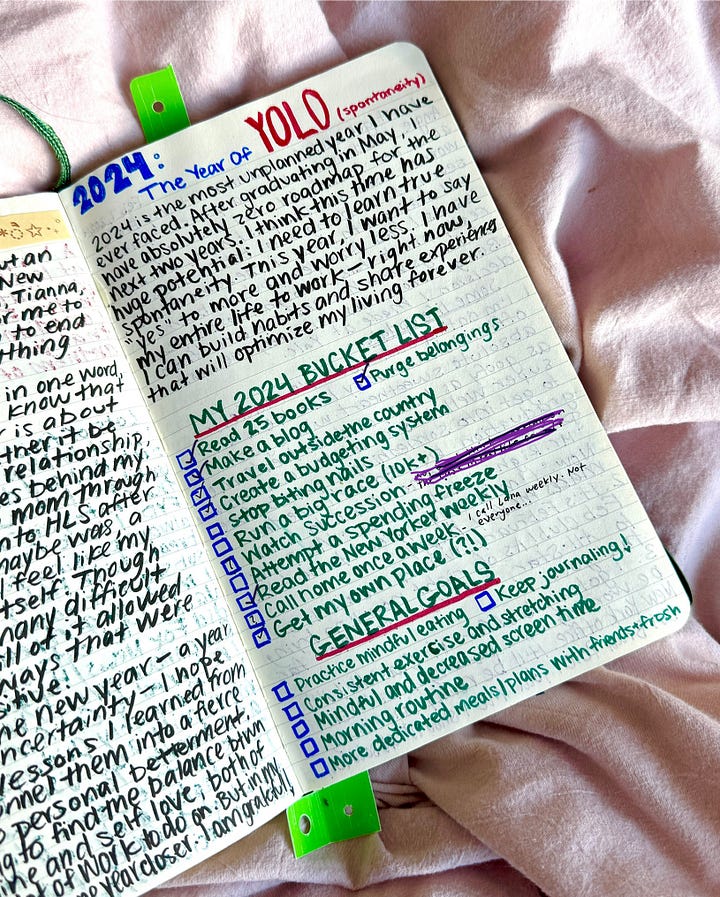 ut an
New
, Tianna,
or me to
to end
ything
in one word,
know that
r is about
ther it be
relationship,
es behind my
mom through
nto HLS after
maybe was a
I feel like my
tself. Though
many difficult
ill of it allowed
ways that were
sitive.
he new year – a year
ncertainty – I hope
lessons I learned from
annel them into a fierce
personal betterment.
g to find the balance btwn
ine and self love, both of
t of work to do on. But in my
one year closer. I am grateful,
2024: The Year Of YOLO (spontaneity)
2024 is the most unplanned year I have
ever faced. After graduating in May, I
have absolutely zero roadmap for the
next two years. I think this time has
huge potential: I need to learn true
spontaneity. This year, I want to say
"yes" to more and worry less. I have
my entire life to work – right now,
I can build habits and share experiences
that will optimize my living forever.
MY 2024 BUCKET LIST
Read 25 books Purge belongings
Make a blog
Travel outside the country
Create a budgeting system
Stop biting nails
Run a big race (10k+)
Watch succession –
Attempt a spending freeze
Read the New Yorker weekly
Call home once a week – I call Lana weekly. Not
everyone...
Get my own place (?!)
GENERAL GOALS
Practice mindful eating Keep journaling!
Consistent exercise and stretching
Mindful and decreased screen time
Morning routine
More dedicated meals/plans with friends + frosh